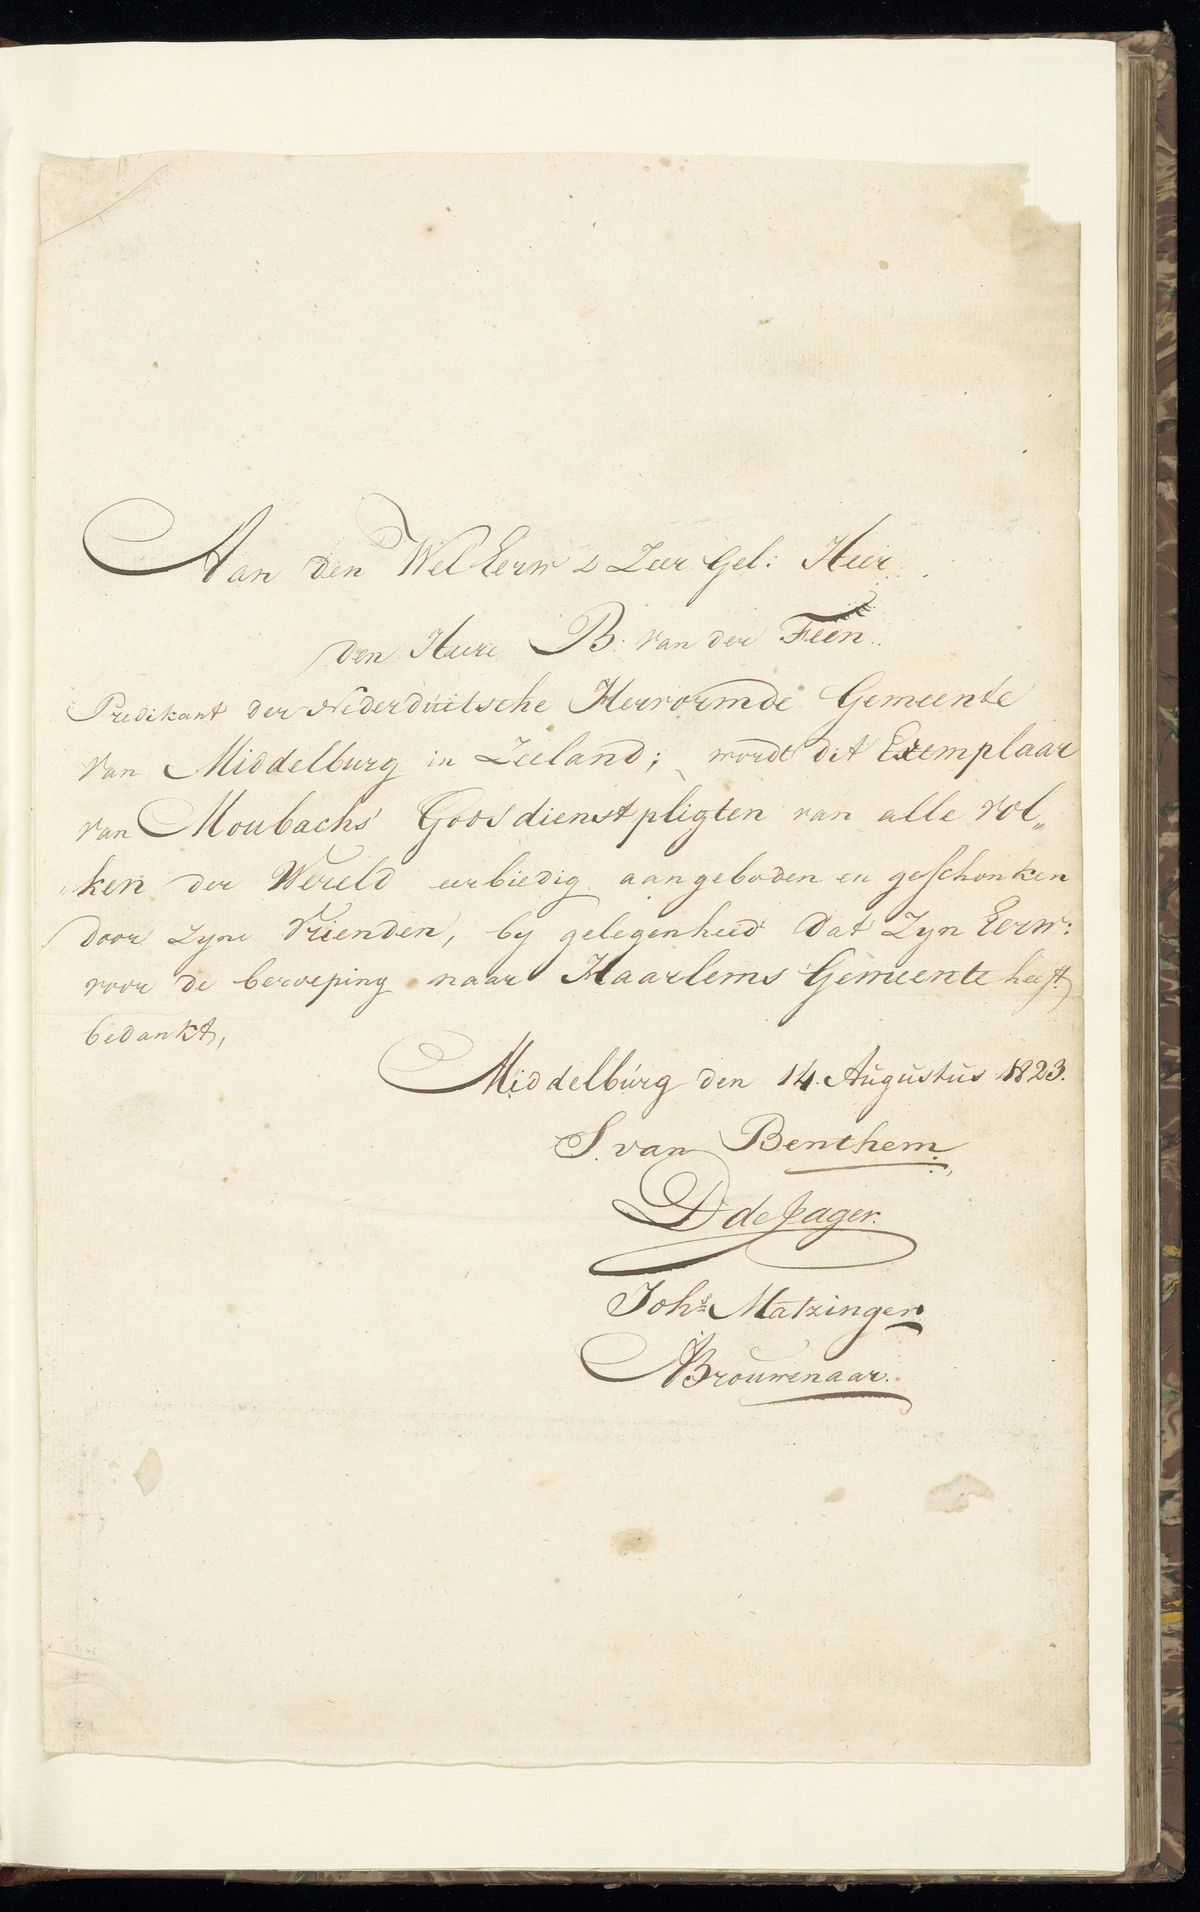 Aan den WelEerw & Zeer Gel: Heer
den Heere B: van der Feen
Predikant der Nederduitsche Hervormde Gemeente
van Middelburg in Zeeland; wordt dit Exemplaar
van Moubachs Godsdienstpligten van alle vol„
„ken der Wereld eerbiedig aangeboden en geschonken
door zyne Vrienden, by gelegenheid dat Zyn Eerw:
voor de beroeping naar Haarlems Gemeente heeft
bedankt,
Middelburg den 14. Augustus 1823.
S. van Benthem.
D de Jager.
Johs Matzinger
ABrouwenaar.